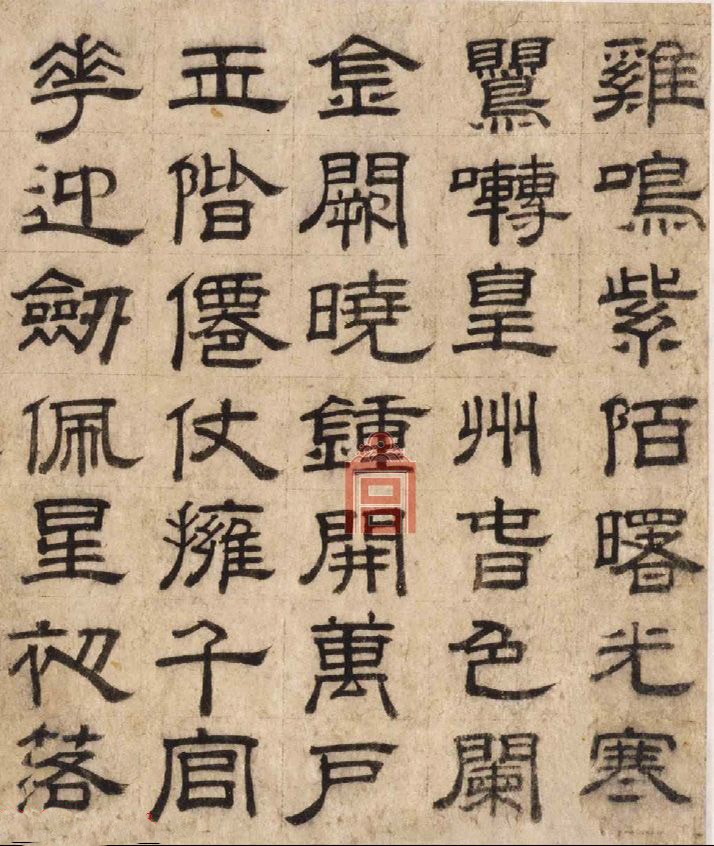 雞鳴紫陌曙光寒
鸎囀皇州旾色闌
金闕曉鍾開萬戶
玉階僊仗擁千官
華迎劒佩星初落